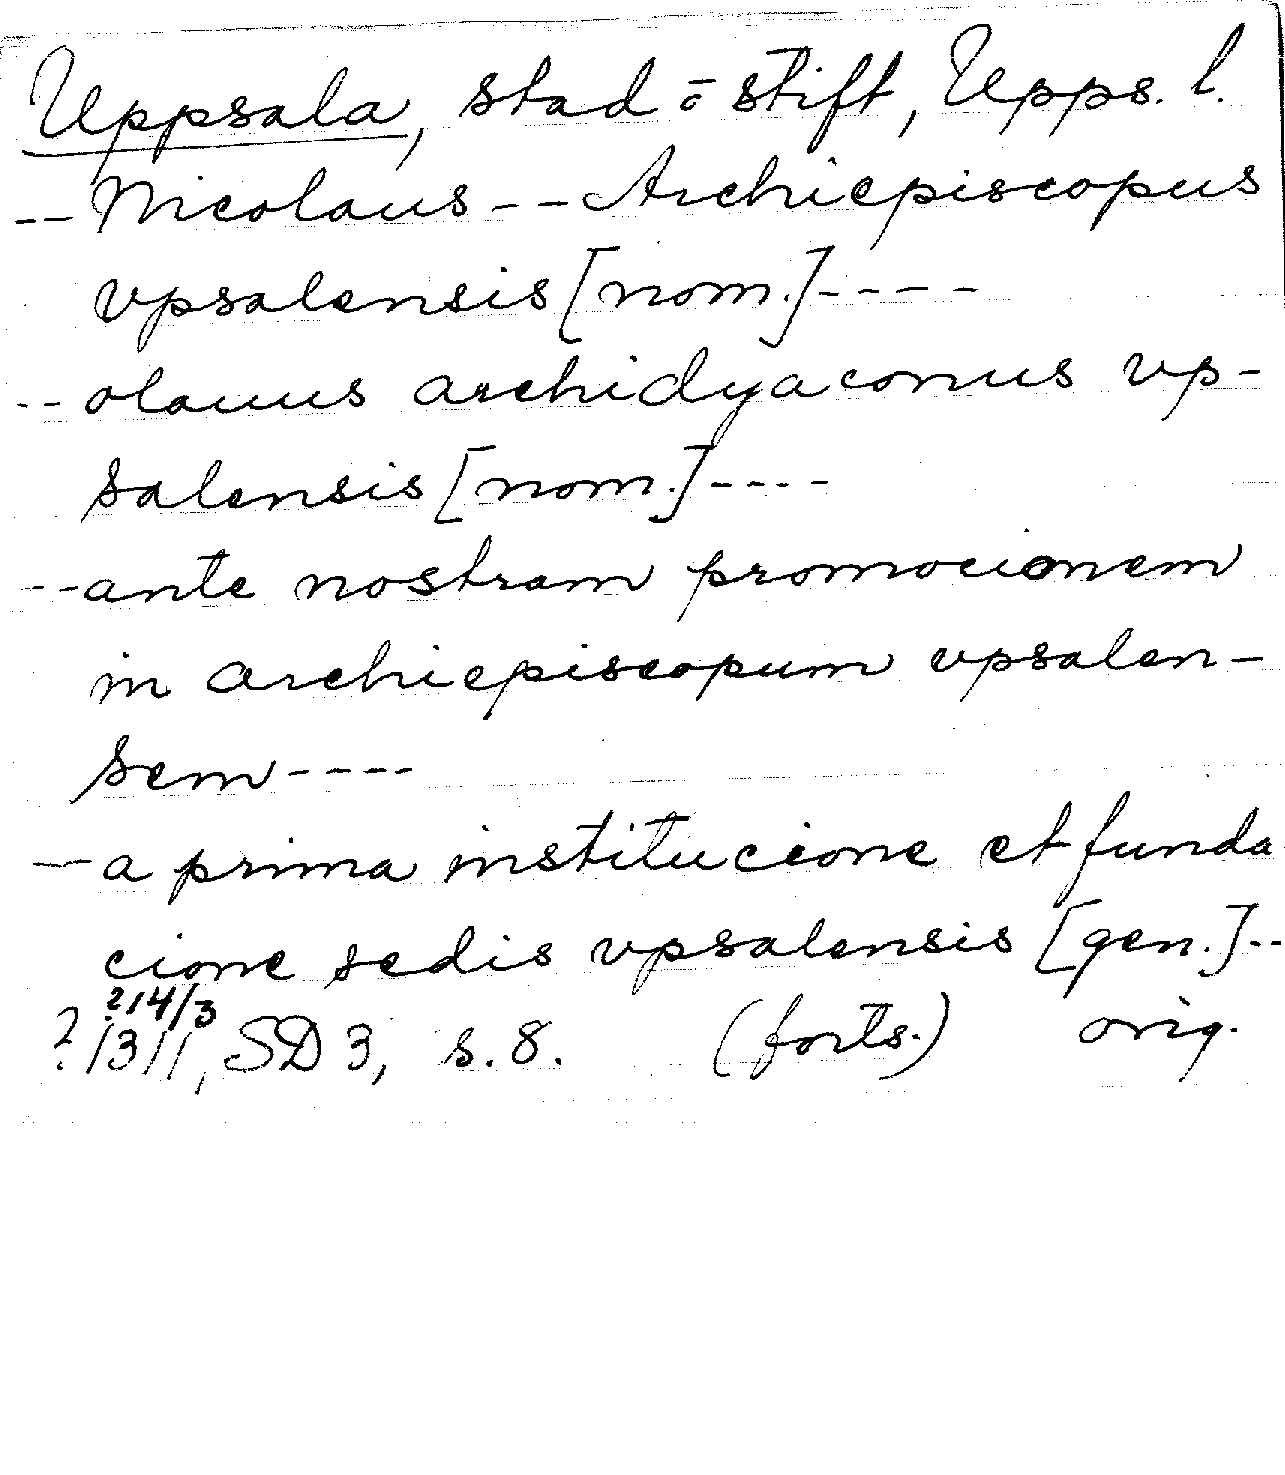 Uppsala, stad ō stift, Upps. l.
-- Nicolaus -- Archiepiscopus
vpsalensis [nom.] ----
-- olauus archidyaconus vp-
salensis [nom.] ----
-- ante nostram promocionem
in archiepiscopum vpsalen-
sem ----
-- a prima institucione et funda
cione sedis vpsalensis [gen.] --
? 14/3
? 1311, SD 3, s. 8. (forts.) orig.